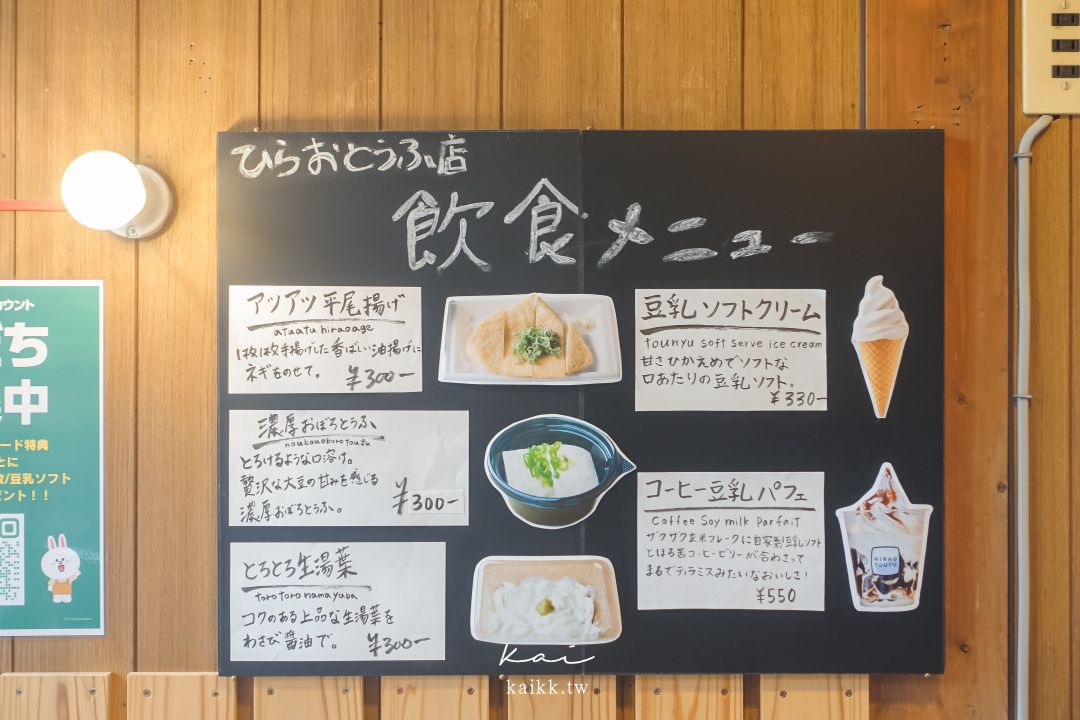 ひらおとうふ店
飲食メニュー
アツアツ平尾揚げ
atuatu hiraoage
1枚1枚手揚げした香ばしい油揚げに
ネギをのせて。
¥300-
濃厚おぼろとうふ
noukouoborotoufu
とろけるような口溶け。
贅沢な大豆の甘みを感じる
濃厚おぼろとうふ。
¥300-
とろとろ生湯葉
torotoro namayuba
コクのある上品な生湯葉を
わさび醤油で。
¥300-
豆乳ソフトクリーム
tounyu soft serve ice cream
甘さひかえめでソフトな
口あたりの豆乳ソフト。
¥330-
コーヒー豆乳パフェ
Coffee Soy milk Parfait
ザクザク玄米フレークに自家製豆乳ソフト
とほろ苦コーヒーゼリーが合わさって
まるでティラミスみたいなおいしさ!
¥550
HIRAO
TOUFU
カウント
だち
中
ード特典
とに
/豆乳ソフト
ント!!
kai
kaikk.tw